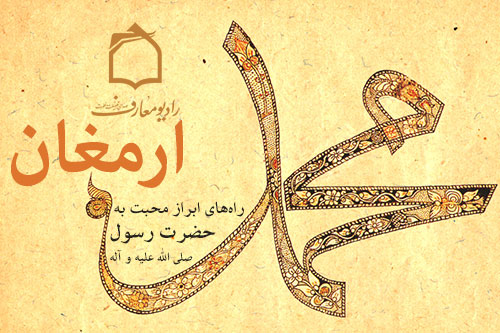 رادیو معارف
ارمغان
محمد
راه‌های ابراز محبت به
حضرت رسول
صلی الله علیه و آله